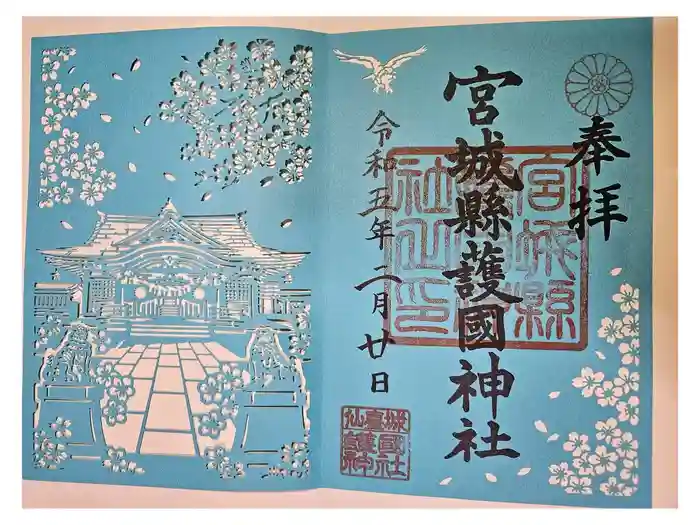 奉拝
宮城縣護國神社
宮城縣
社之印
令和五年二月廿日
城國社
仙臺護神